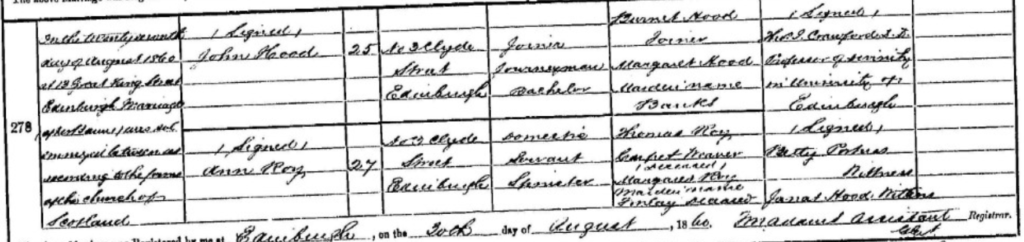 278
In the twenty seventh
day of August 1860
at 13 Great King Street
Edinburgh Marriage
after Banns was sol
emnized between us
according to the forms
of the Church of
Scotland
(Signed)
John Hood
(Signed)
Ann Roy
25
27
No 3 Clyde
Street
Edinburgh
No 3 Clyde
Street
Edinburgh
Joiner
Journeyman
Bachelor
Domestic
Servant
Spinster
Burnet Hood
Joiner
Margaret Hood
Maiden name
Banks
Thomas Roy
Carpet Weaver
(deceased)
Margaret Roy
Maiden name
Finlay
(Signed)
Thos. J. Crawford D.D.
Professor of Divinity
in University of
Edinburgh
(Signed)
Betty Porteus
Witness
Janet Hood Witness
Registered by me at Edinburgh, on the 30th day of August, 1860. Assistant Registrar.